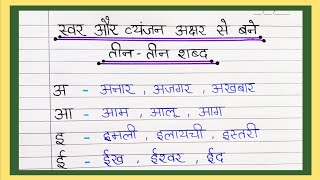 स्वर और व्यंजन अक्षर से बने
तीन-तीन शब्द
अ - अनार , अजगर , अखबार
आ - आम , आलू , आग
इ - इमली , इलायची , इस्तरी
ई - ईख , ईश्वर , ईद